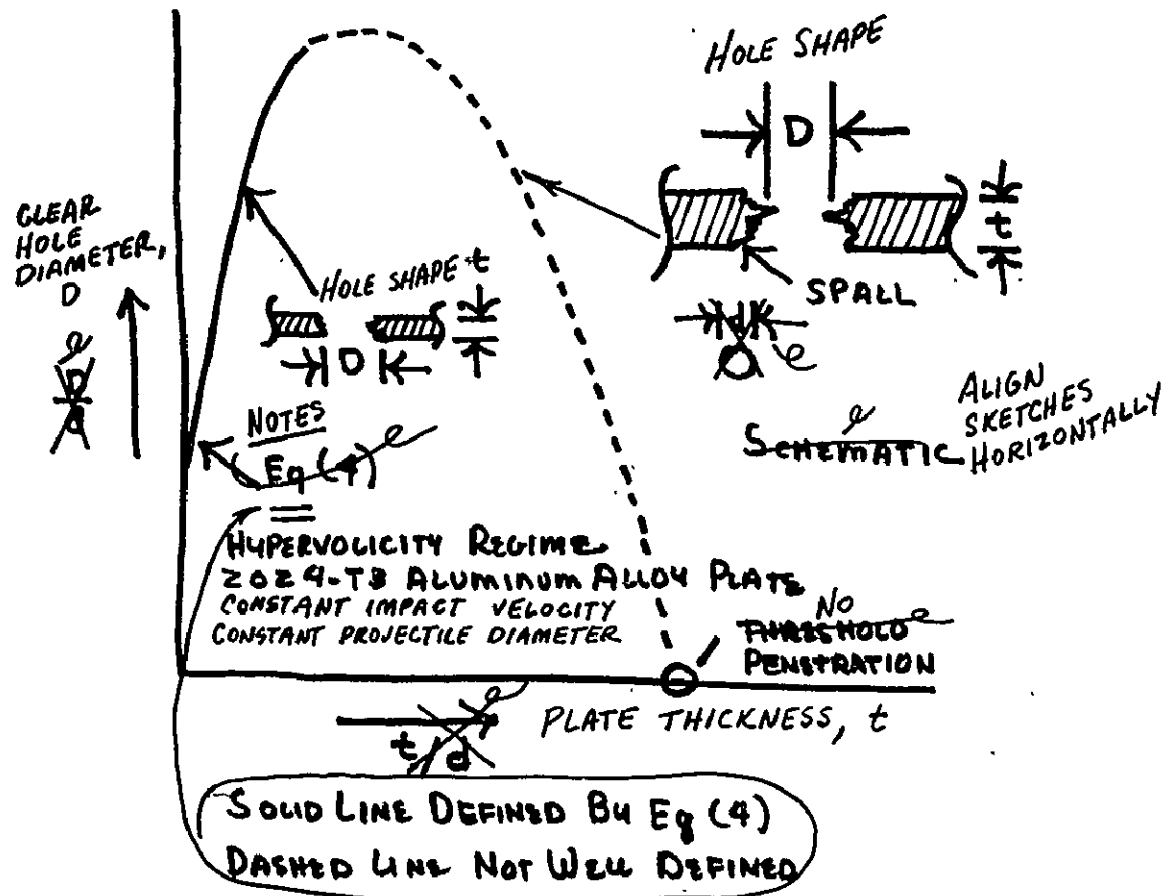 HOLE SHAPE
D
t
SPALL
d
e
CLEAR
HOLE
DIAMETER,
D
e
D
d
HOLE SHAPE
t
D
ALIGN
SKETCHES
HORIZONTALLY
e
SCHEMATIC
NOTES
Eq (4)
e
HYPERVOLICITY REGIME
2024-T3 ALUMINUM ALLOY PLATE
CONSTANT IMPACT VELOCITY
CONSTANT PROJECTILE DIAMETER
NO
THRESHOLD
e
PENSTRATION
e
t/d
PLATE THICKNESS, t
SOLID LINE DEFINED BY Eq (4)
DASHED LINE NOT WELL DEFINED